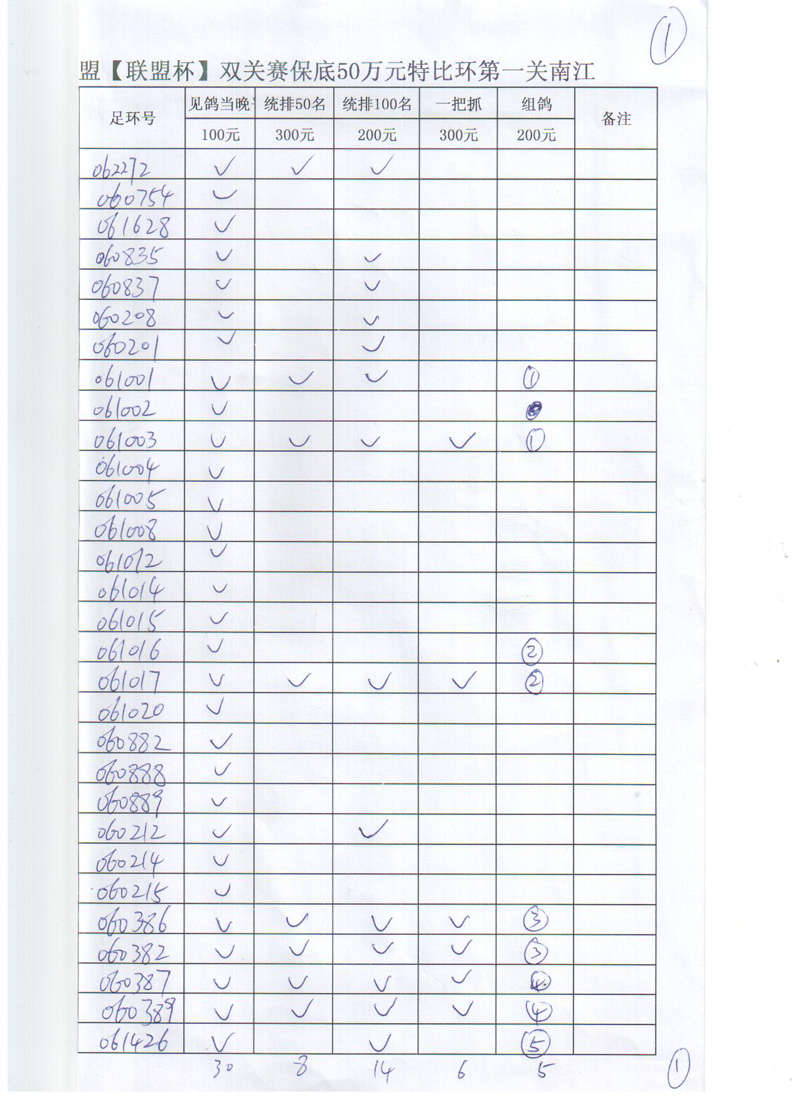 ①
盟【联盟杯】双关赛保底50万元特比环第一关南江
足环号 见鸽当晚 统排50名 统排100名 一把抓 组鸽 备注
100元 300元 200元 300元 200元
062272 ✓ ✓ ✓
060754 ✓
061628 ✓
060835 ✓ ✓
060837 ✓ ✓
060208 ✓ ✓
060201 ✓ ✓
061001 ✓ ✓ ✓ ①
061002 ✓
061003 ✓ ✓ ✓ ✓ ①
061004 ✓
061005 ✓
061008 ✓
061012 ✓
061014 ✓
061015 ✓
061016 ✓ ②
061017 ✓ ✓ ✓ ✓ ②
061020 ✓
060882 ✓
060888 ✓
060889 ✓
060212 ✓ ✓
060214 ✓
060215 ✓
060386 ✓ ✓ ✓ ✓ ③
060382 ✓ ✓ ✓ ✓ ③
060387 ✓ ✓ ✓ ✓ ④
060389 ✓ ✓ ✓ ✓ ④
061426 ✓ ✓ ⑤
30 8 14 6 5 ①